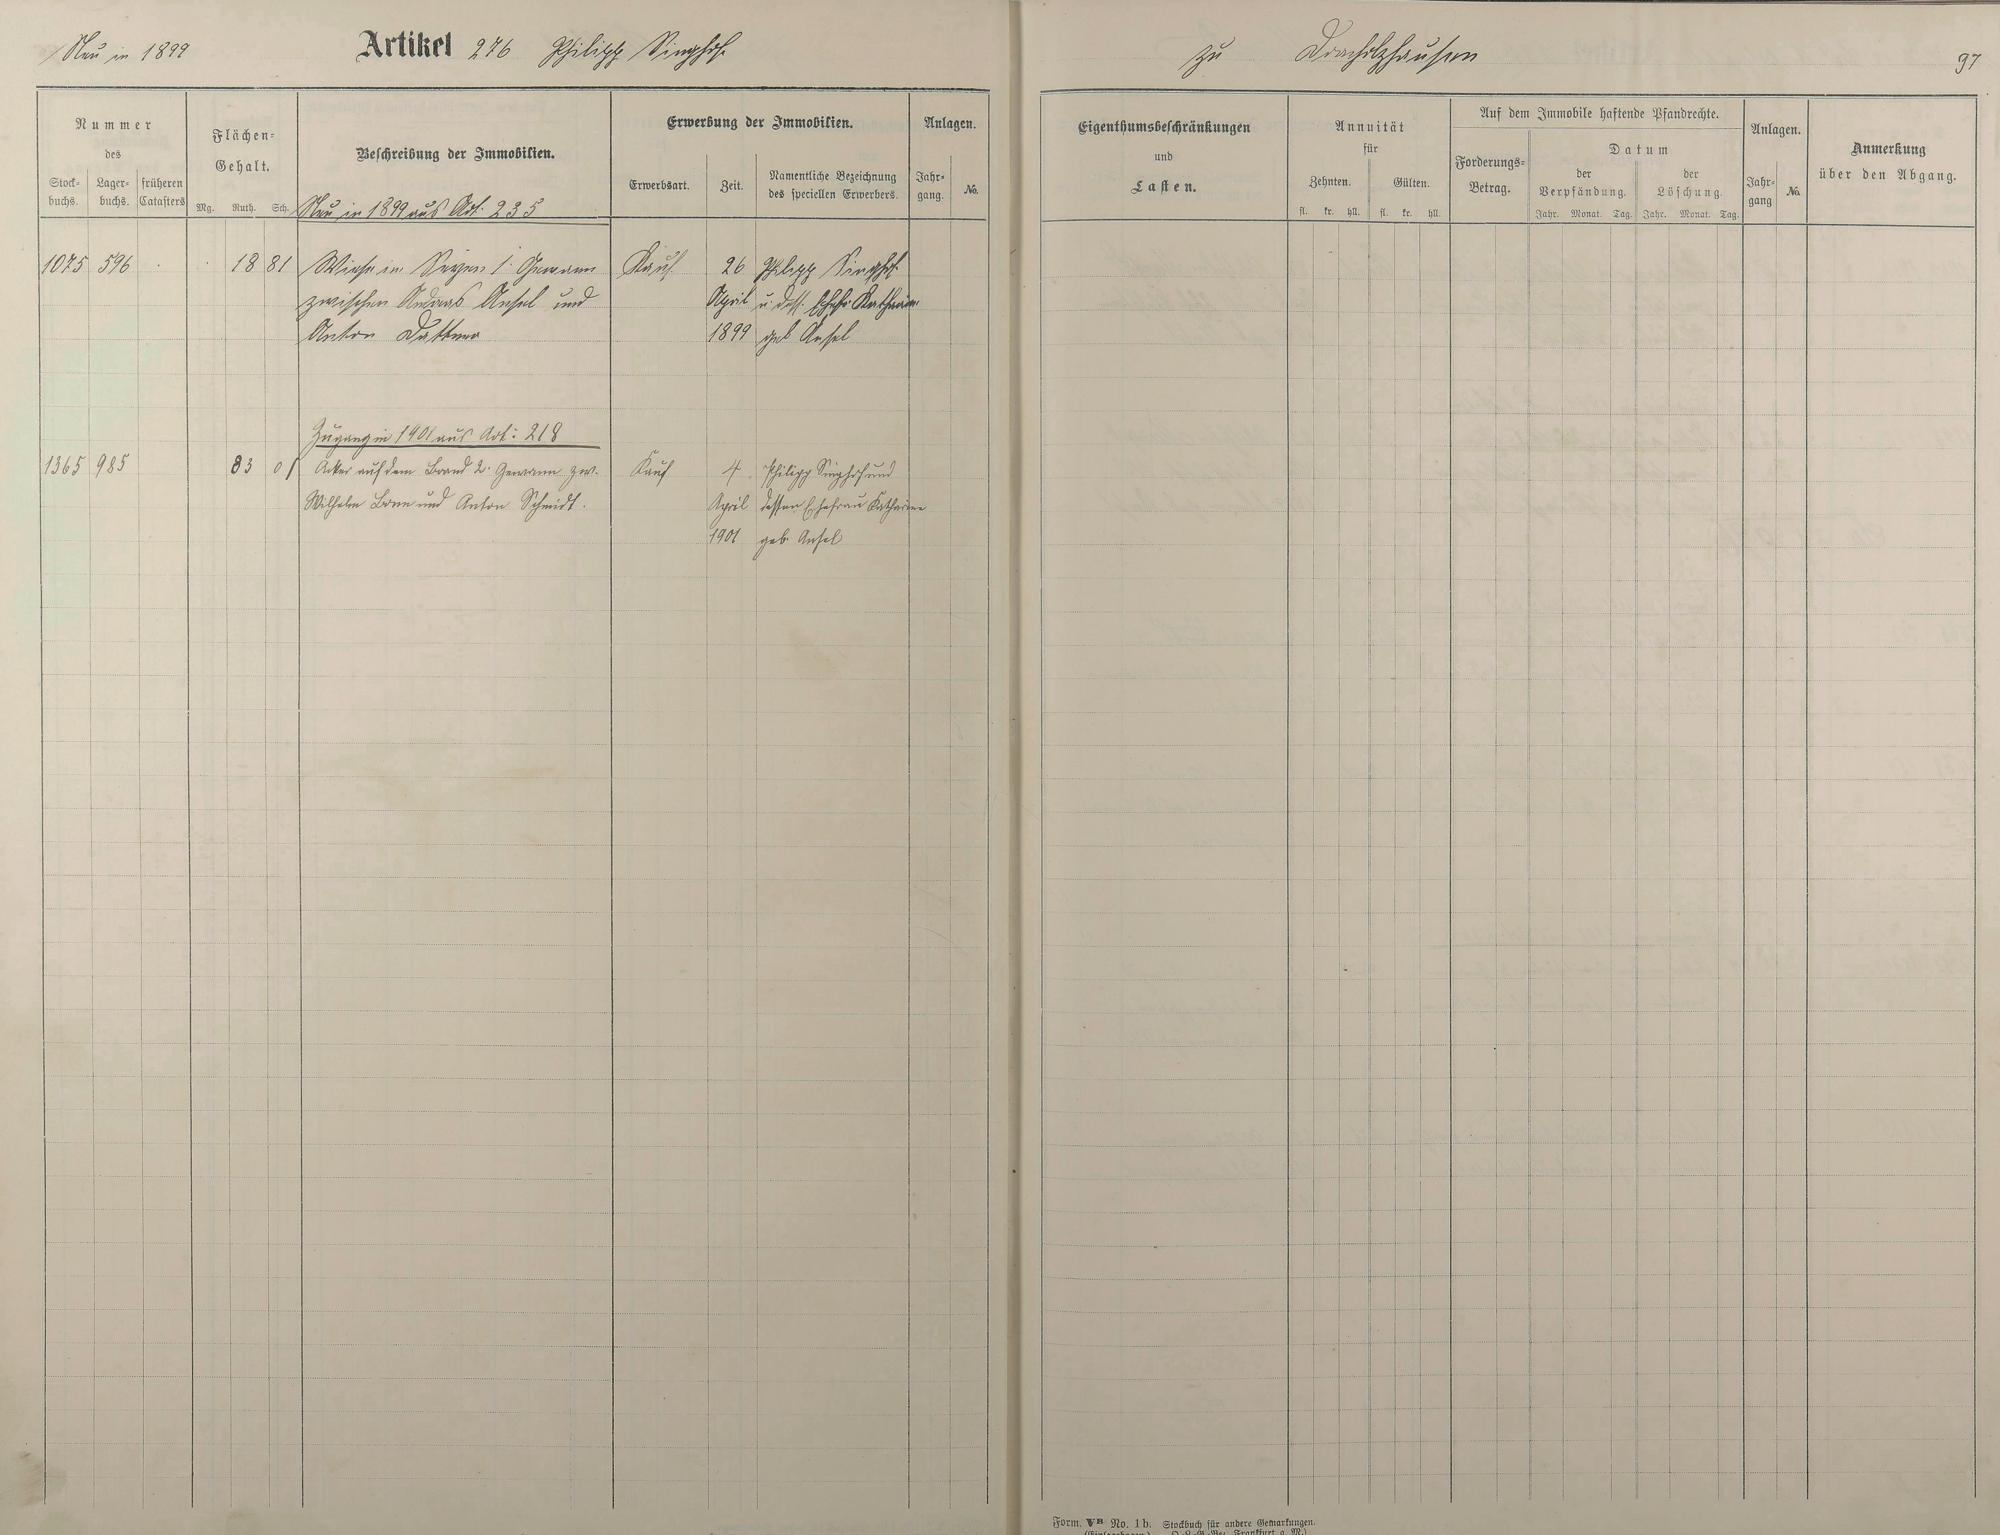 Neu in 1899 Artikel 276 Philipp Singhof zu 97
Nummer
des
Stock-
buchs.
Lager-
buchs.
früheren
Catasters
Flächen-
Gehalt.
Mg. Ruth. Sch.
Beschreibung der Immobilien.
Neu in 1899 aus Art. 235
Erwerbung der Immobilien.
Erwerbsart. Zeit.
Namentliche Bezeichnung
des speciellen Erwerbers.
Anlagen.
Jahr-
gang. No.
Eigenthumsbeschränkungen
und
Lasten.
Annuität
für
Zehnten. Gülten.
fl. kr. hll. fl. kr. hll.
Auf dem Immobile haftende Pfandrechte.
Forderungs-
Betrag.
Datum
der
Verpfändung.
Jahr. Monat. Tag.
der
Löschung.
Jahr. Monat. Tag.
Anlagen.
Jahr-
gang No.
Anmerkung
über den Abgang.
1075 596 18 81 Wiese im 1. Gewann Kauf 26 Philipp Singhof
zwischen Andreas Ansel und April u. dess. Ehefr. Katharine
Anton 1899 geb. Ansel
Zugang in 1901 aus Art: 218
1365 985 83 01 Acker auf dem Brand 2. Gewann zw. Kauf 4. Philipp Singhof und
Wilhelm und Anton Schmidt. April dessen Ehefrau Katharine
1901 geb. Ansel
Form. VB No. 1b. Stockbuch für andere Gemarkungen.